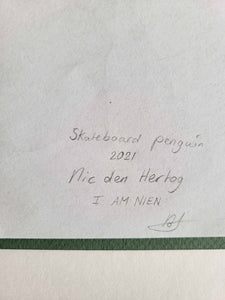 Skateboard penguin
2021
Nic den Hertog
I AM NIEN